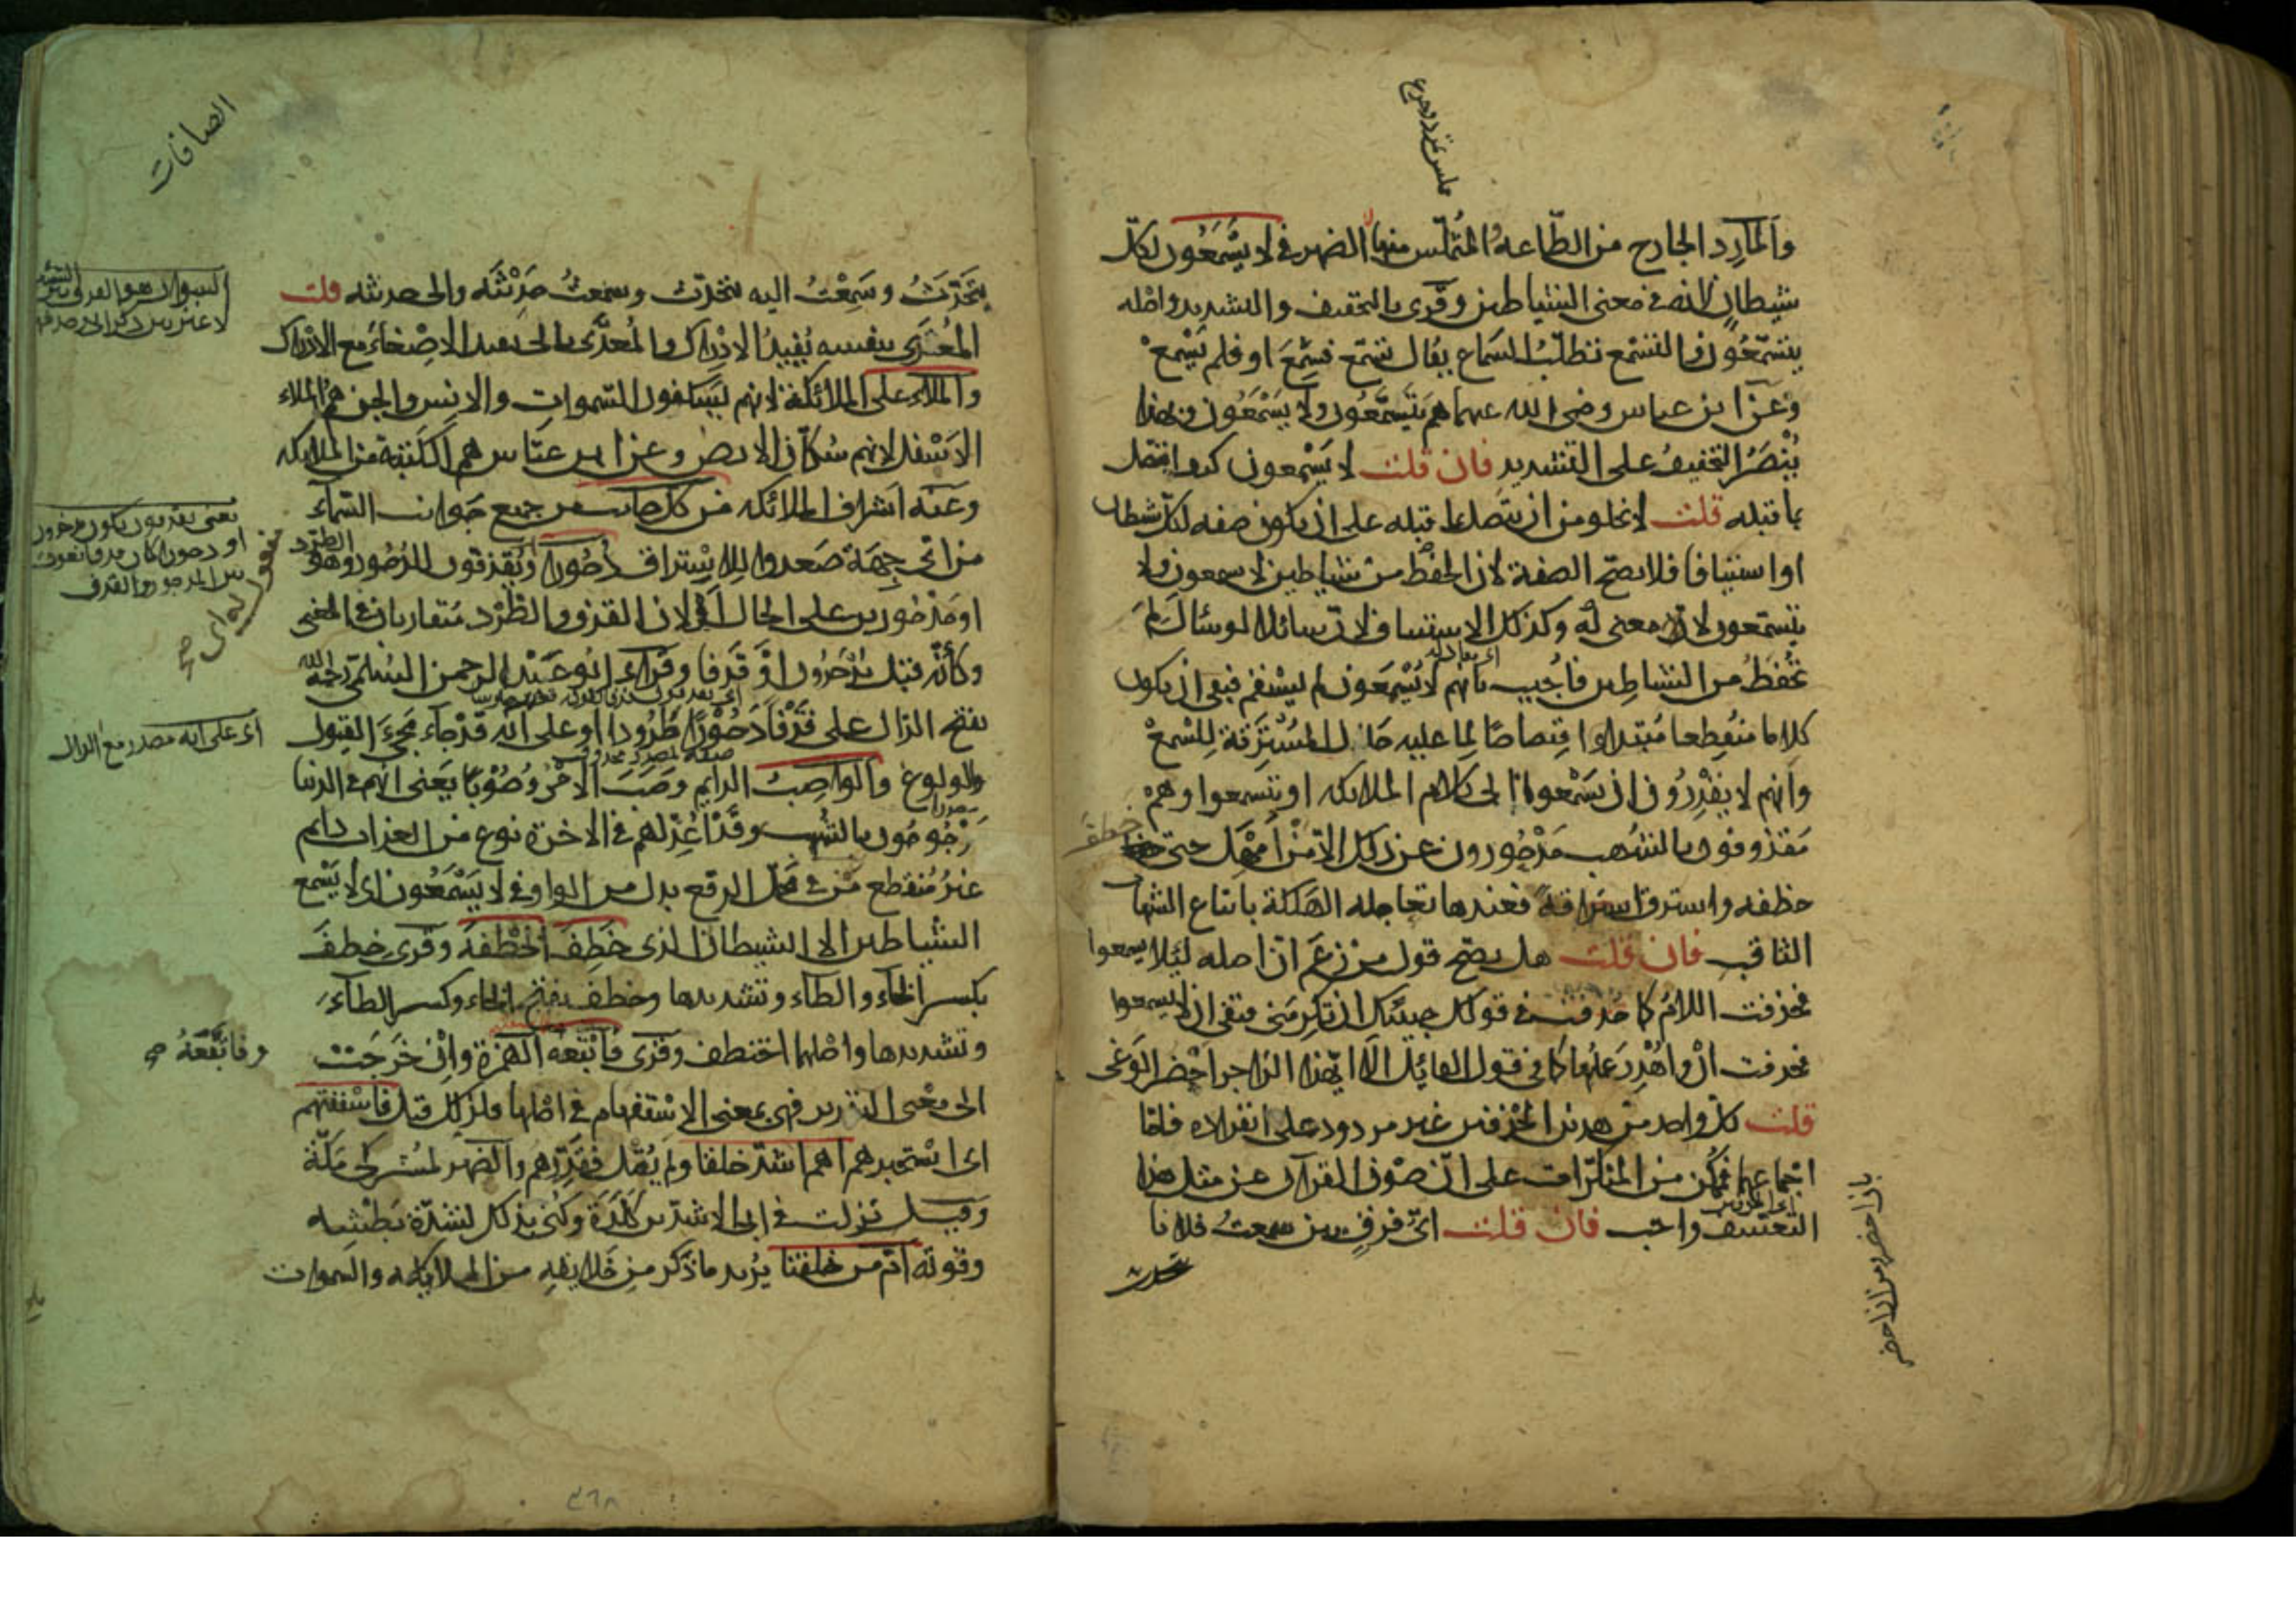 والمارد الخارج من الطاعة المتملس منها الضمير في لا يسمعون لكل
شيطان لانه في معنى الشياطين وقرئ بالتخفيف والتشديد واصله
يتسمعون والتسمع تطلب السماع يقال تسمع فسمع او فلم يسمع
وعن ابن عباس رضي الله عنهما هم يتسمعون ولا يسمعون وبهذا
ينصر التخفيف على التشديد فان قلت لا يسمعون كيف اتصل
بما قبله قلت لا يخلو من ان يتصل بما قبله على ان يكون صفة لكل شيطان
او استينافا فلا يصح الصفة لان الحفظ من شياطين لا يسمعون ولا
يتسمعون لا معنى له وكذلك الاستيناف لان سائلا لو سال لم
تحفظ من الشياطين فاجيب بانهم لا يسمعون لم يستقم فبقي ان يكون
كلاما منقطعا مبتدا اقتصاصا لما عليه حال المسترقة للسمع
وانهم لا يقدرون ان يسمعوا الى كلام الملائكة او يتسمعوا وهم
مقذوفون بالشهب مدحورون عن ذلك الا من امهل حتى
خطف
خطفة واسترق استراقة فعندها تعاجله الهلكة باتباع الشهاب
الثاقب فان قلت هل يصح قول من زعم ان اصله لئلا يسمعوا
فحذفت اللام كما حذفت في قولك جيتك ان تكرمني فبقي ان لا يسمعوا
فحذفت ان واهدر عملها كما في قول القائل الا ايهذا الزاجري احضر الوغى
قلت كل واحد من هذين الحذفين غير مردود على انفراده فاما
اجتماعهما فمنكر من المنكرات على ان صون القرآن عن مثل هذا
التعسف واجب فان قلت اي فرق بين سمعت فلانا
يتحدث
الصافات
يتحدث وسمعت اليه يتحدث وسمعت حديثه والى حديثه قلت
المعدى بنفسه يفيد الادراك والمعدى بالى يفيد الاصغاء مع الادراك
والملاء على الملائكة لانهم يسكنون السموات والانس والجن هم الملاء
الاسفل لانهم سكان الارض وعن ابن عباس هم الكتبة من الملائكة
وعنه اشراف الملائكة من كل جانب من جميع جوانب السماء
من اي جهة صعدوا للاستراق دحورا ويقذفون للدحور وهو
الطرد
او مدحورين على الحال او لان القذف والطرد متقاربان في المعنى
وكأنه قيل يدحرون او قذفا وقراء ابو عبد الرحمن السلمي رحمه الله
بفتح الدال على قذفا دحورا طرودا او على انه قد جاء مجيء القبول
والولوغ والواصب الدايم وصب الامر وصوبا يعني انهم في الدنيا
مرجومون بالشهب وقد اعد لهم في الاخرة نوع من العذاب دايم
غير منقطع من في محل الرفع بدل من الواو في لا يسمعون اى لا يسمع
الشياطين الا الشيطان الذى خطف الخطفة وقرئ خطف
بكسر الخاء والطاء وتشديدها وخطف بفتح الخاء وكسر الطاء
وتشديدها واصلهما اختطف وقرئ فاتبعه الهمزة وان خرجت
وفاتبعه صح
الى معنى التقرير فهى بمعنى الاستفهام في اصلها فلذلك قيل فاستفتهم
اى استخبرهم اهم اشد خلقا ولم يقل فقررهم والضمير لمشركي مكة
وقيل نزلت في ابي الاشد بن كلدة وكني بذلك لشدة بطشه
وقوته ام من خلقنا يريد ما ذكر من خلايقه من الملائكة والسموات
اى على انه مصدر مع الدال
٣٦٨